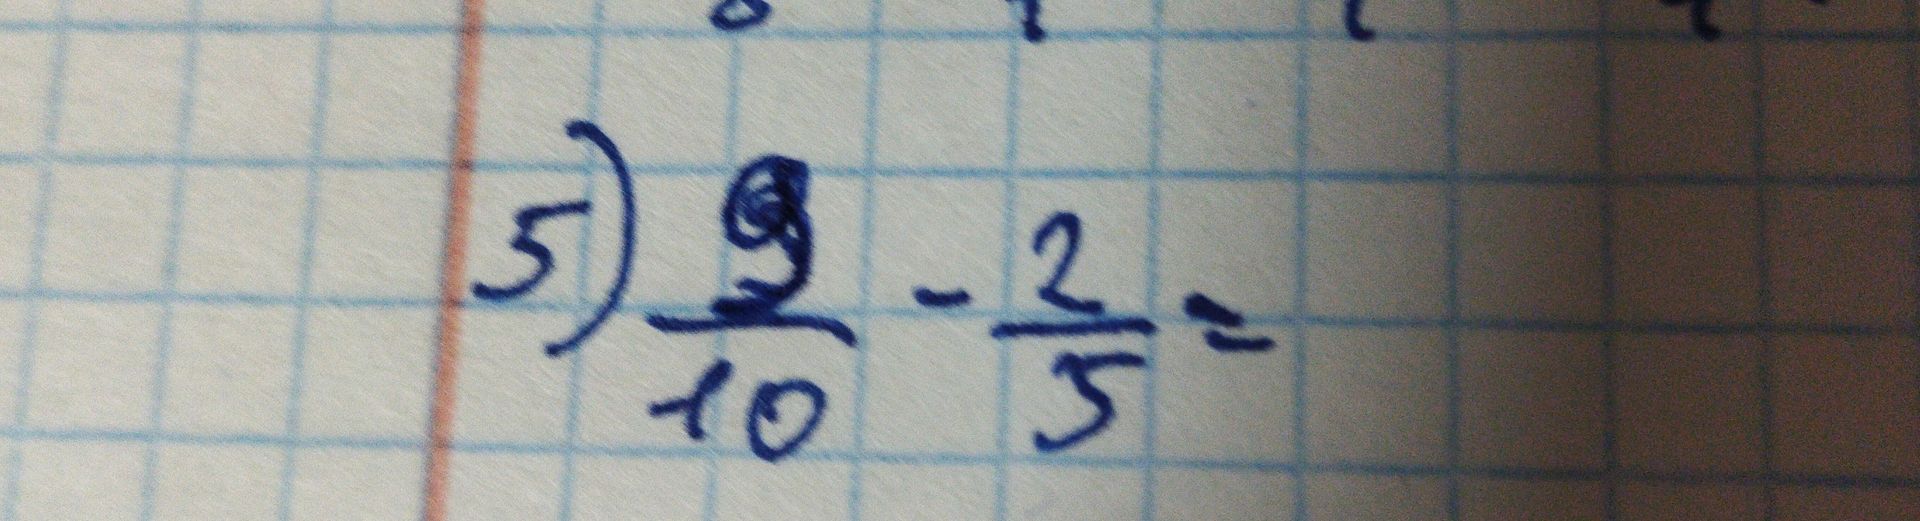 5) 9/10 - 2/5 =